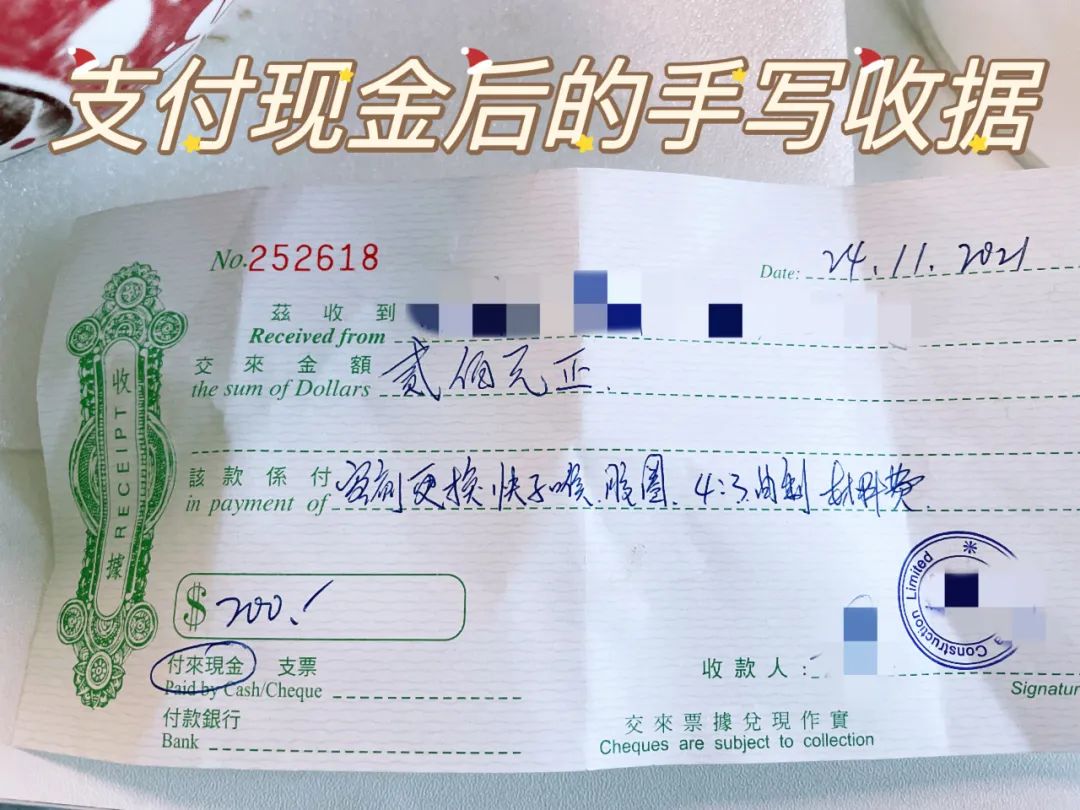 支付现金后的手写收据
No. 252618
Date: 24.11.2021
茲收到
Received from
交來金額
the sum of Dollars 貳佰元正.
該款係付
in payment of 更換 快子喉. 膠圈. 材料費.
收
RECEIPT
據
$ 200.
付來現金 支票
Paid by Cash/Cheque
付款銀行
Bank
收款人:
交來票據兌現作實
Cheques are subject to collection
Construction Limited